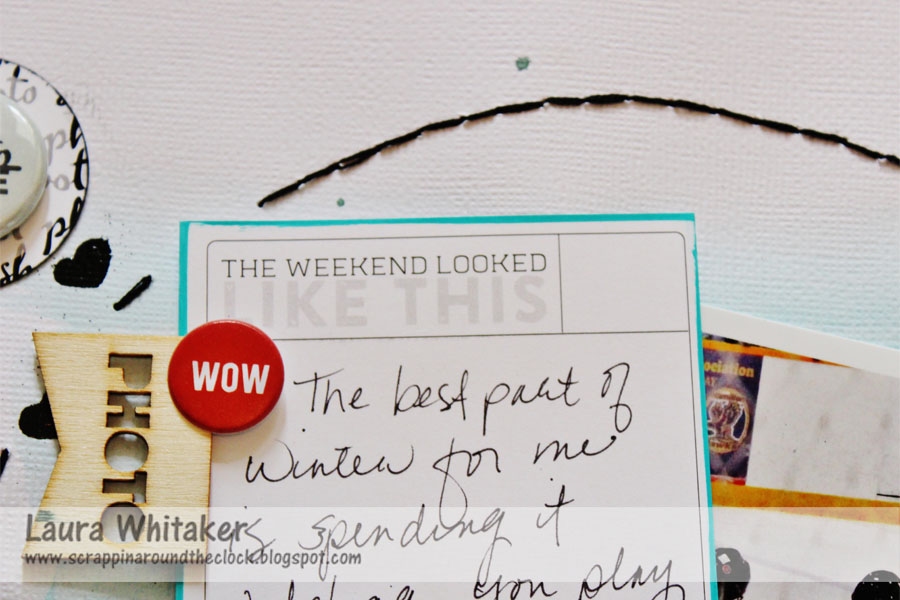 THE WEEKEND LOOKED
LIKE THIS
WOW
The best part of
winter for me
is spending it
you play
PHOTO
to
ociation
AT
Laura Whitaker
www.scrappinaroundtheclock.blogspot.com